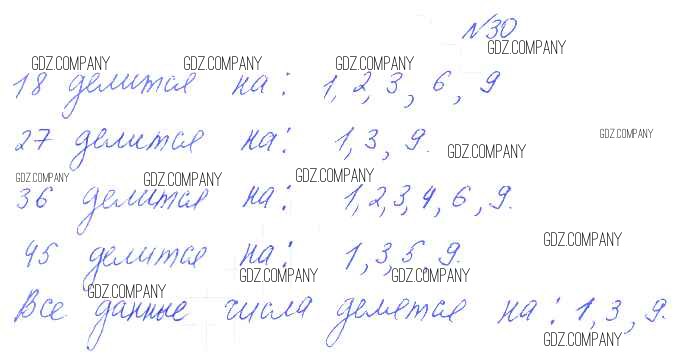 №30
GDZ.COMPANY
GDZ.COMPANY GDZ.COMPANY GDZ.COMPANY
18 делится на: 1, 2, 3, 6, 9
GDZ.COMPANY
27 делится на: 1, 3, 9.
GDZ.COMPANY
GDZ.COMPANY GDZ.COMPANY GDZ.COMPANY
36 делится на: 1, 2, 3, 4, 6, 9.
GDZ.COMPANY
45 делится на: 1, 3, 5, 9.
GDZ.COMPANY GDZ.COMPANY
GDZ.COMPANY
Все данные числа делятся на: 1, 3, 9.
GDZ.COMPANY